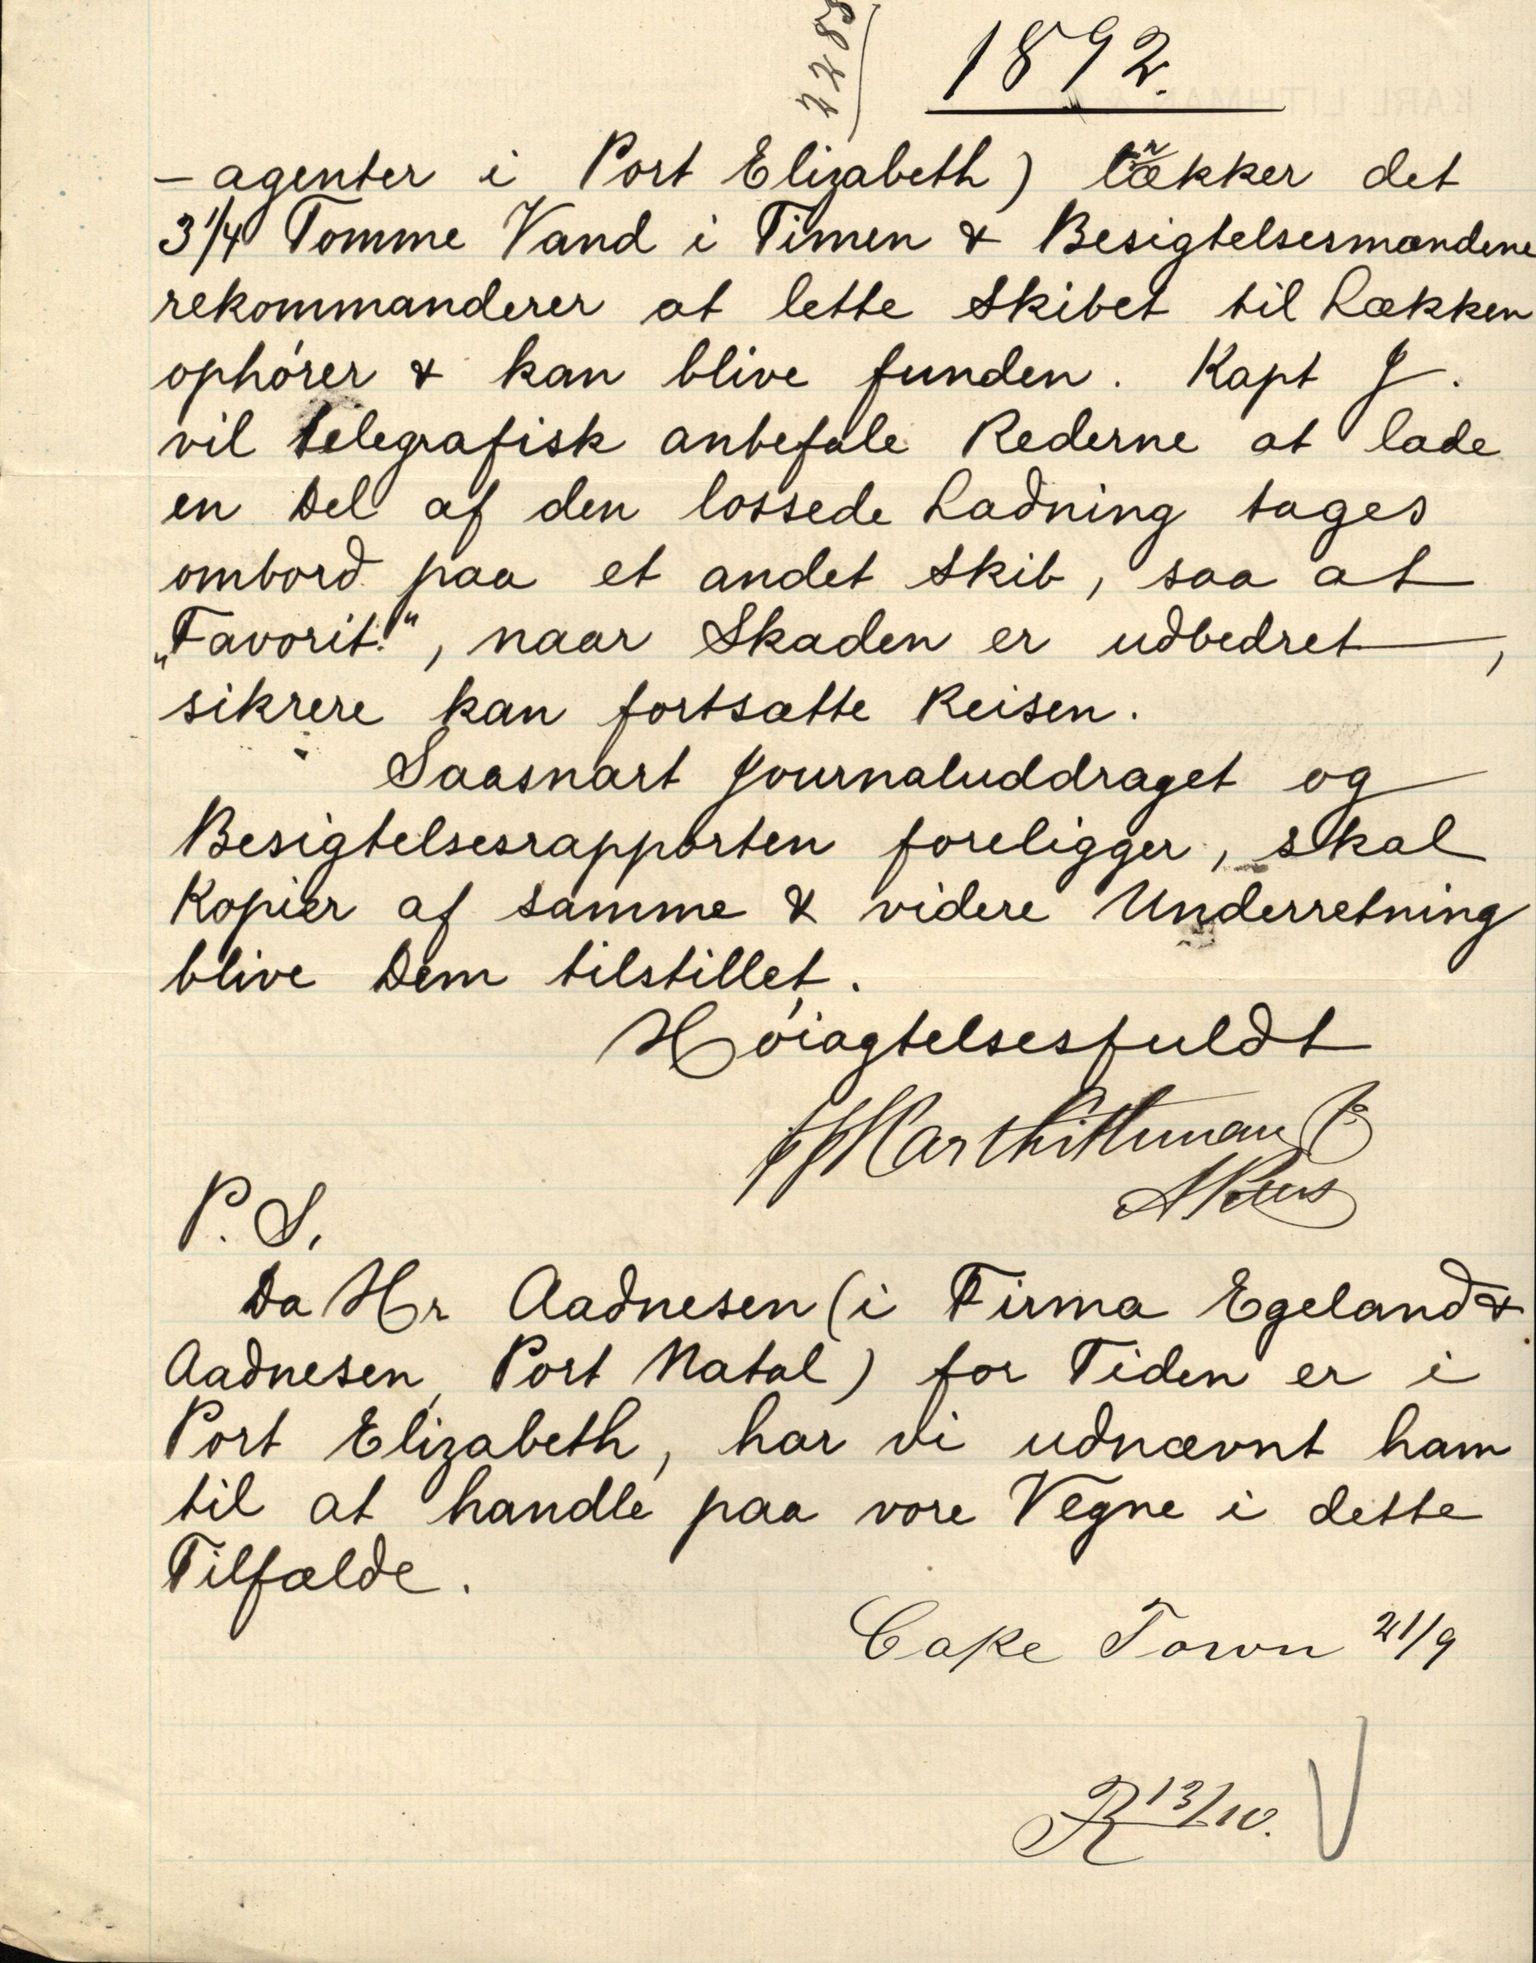 2285
1892.
– agenter i Port Elizabeth) lækker det
3 1/4 Tomme Vand i Timen & Besigtelsesmændene
rekommanderer at lette Skibet til Lækken
ophører & kan blive funden. Kapt J.
vil telegrafisk anbefale Rederne at lade
en Del af den lossede Ladning tages
ombord paa et andet Skib, saa at
„Favorit“, naar Skaden er udbedret,
sikrere kan fortsætte Reisen.
Saasnart Journaluddraget og
Besigtelsesrapporten foreligger, skal
Kopier af samme & videre Underretning
blive Dem tilstillet.
Høiagtelsesfuldt
P. S.
Da Hr Aadnesen (i Firma Egeland &
Aadnesen, Port Natal) for Tiden er i
Port Elizabeth, har vi udnævnt ham
til at handle paa vore Vegne i dette
Tilfælde.
Cape Town 21/9
R 13/10.